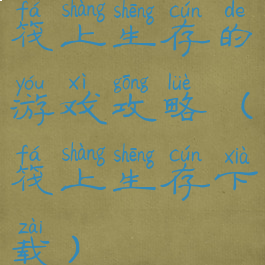 fá shàng shēng cún de
筏上生存的
yóu xì gōng lüè
游戏攻略（
fá shàng shēng cún xià
筏上生存下
zài
载）